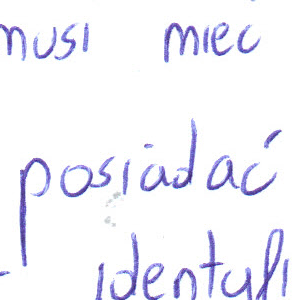 musi mieć
posiadać
identyfi